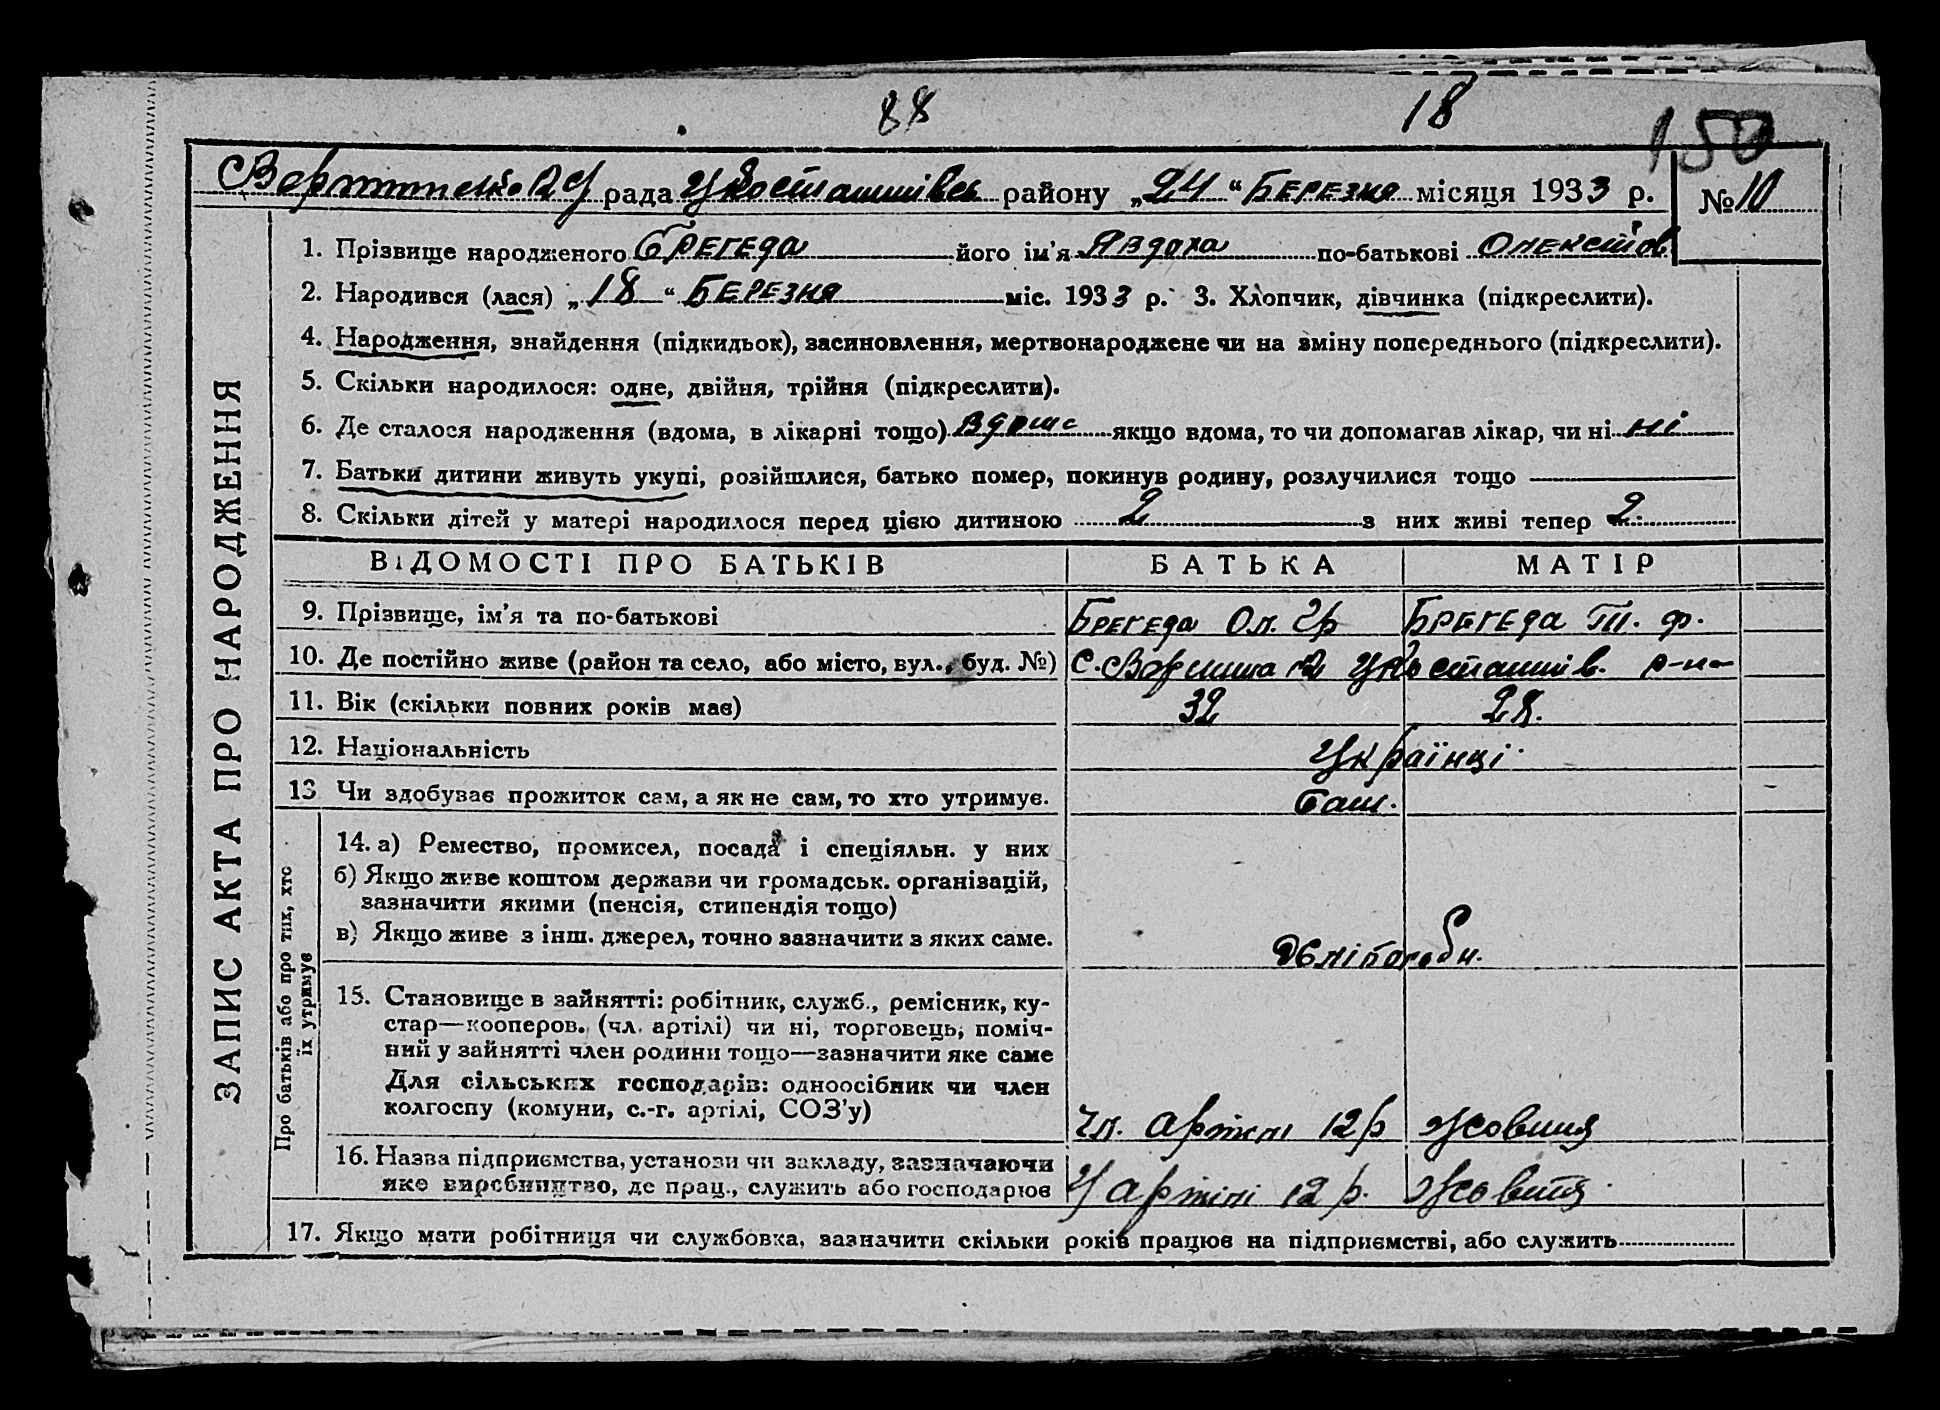 88 18 150
рада району „24“ Березня місяця 1933 р. № 10
ЗАПИС АКТА ПРО НАРОДЖЕННЯ
1. Прізвище народженого Брегеда його ім'я Явдоха по-батькові
2. Народився (лася) „18“ Березня міс. 1933 р. 3. Хлопчик, дівчинка (підкреслити).
4. Народження, знайдення (підкидьок), засиновлення, мертвонароджене чи на зміну попереднього (підкреслити).
5. Скільки народилося: одне, двійня, трійня (підкреслити).
6. Де сталося народження (вдома, в лікарні тощо) вдома якщо вдома, то чи допомагав лікар, чи ні ні
7. Батьки дитини живуть укупі, розійшлися, батько помер, покинув родину, розлучилися тощо
8. Скільки дітей у матері народилося перед цією дитиною 2 з них живі тепер 2
ВІДОМОСТІ ПРО БАТЬКІВ БАТЬКА МАТІР
9. Прізвище, ім'я та по-батькові Брегеда Ол. Гр Брегеда Т. Ф.
10. Де постійно живе (район та село, або місто, вул., буд. №) р-на
11. Вік (скільки повних років має) 32 28.
12. Національність Українці
13 Чи здобуває прожиток сам, а як не сам, то хто утримує. Сам.
Про батьків або про тих, хто
їх утримує
14. а) Ремество, промисел, посада і спеціяльн. у них
б) Якщо живе коштом держави чи громадськ. організацій,
зазначити якими (пенсія, стипендія тощо)
в) Якщо живе з інш. джерел, точно зазначити з яких саме. Хліборобн.
15. Становище в зайнятті: робітник, служб., ремісник, ку-
стар—кооперов. (чл. артілі) чи ні, торговець, поміч-
ний у зайнятті член родини тощо—зазначити яке саме
Для сільських господарів: одноосібник чи член
колгоспу (комуни, с.-г. артілі, СОЗ'у) чл. артілі 12 р Жовтня
16. Назва підприємства, установи чи закладу, зазначаючи
яке виробництво, де прац., служить або господарює У артілі 12 р. Жовтня
17. Якщо мати робітниця чи службовка, зазначити скільки років працює на підприємстві, або служить